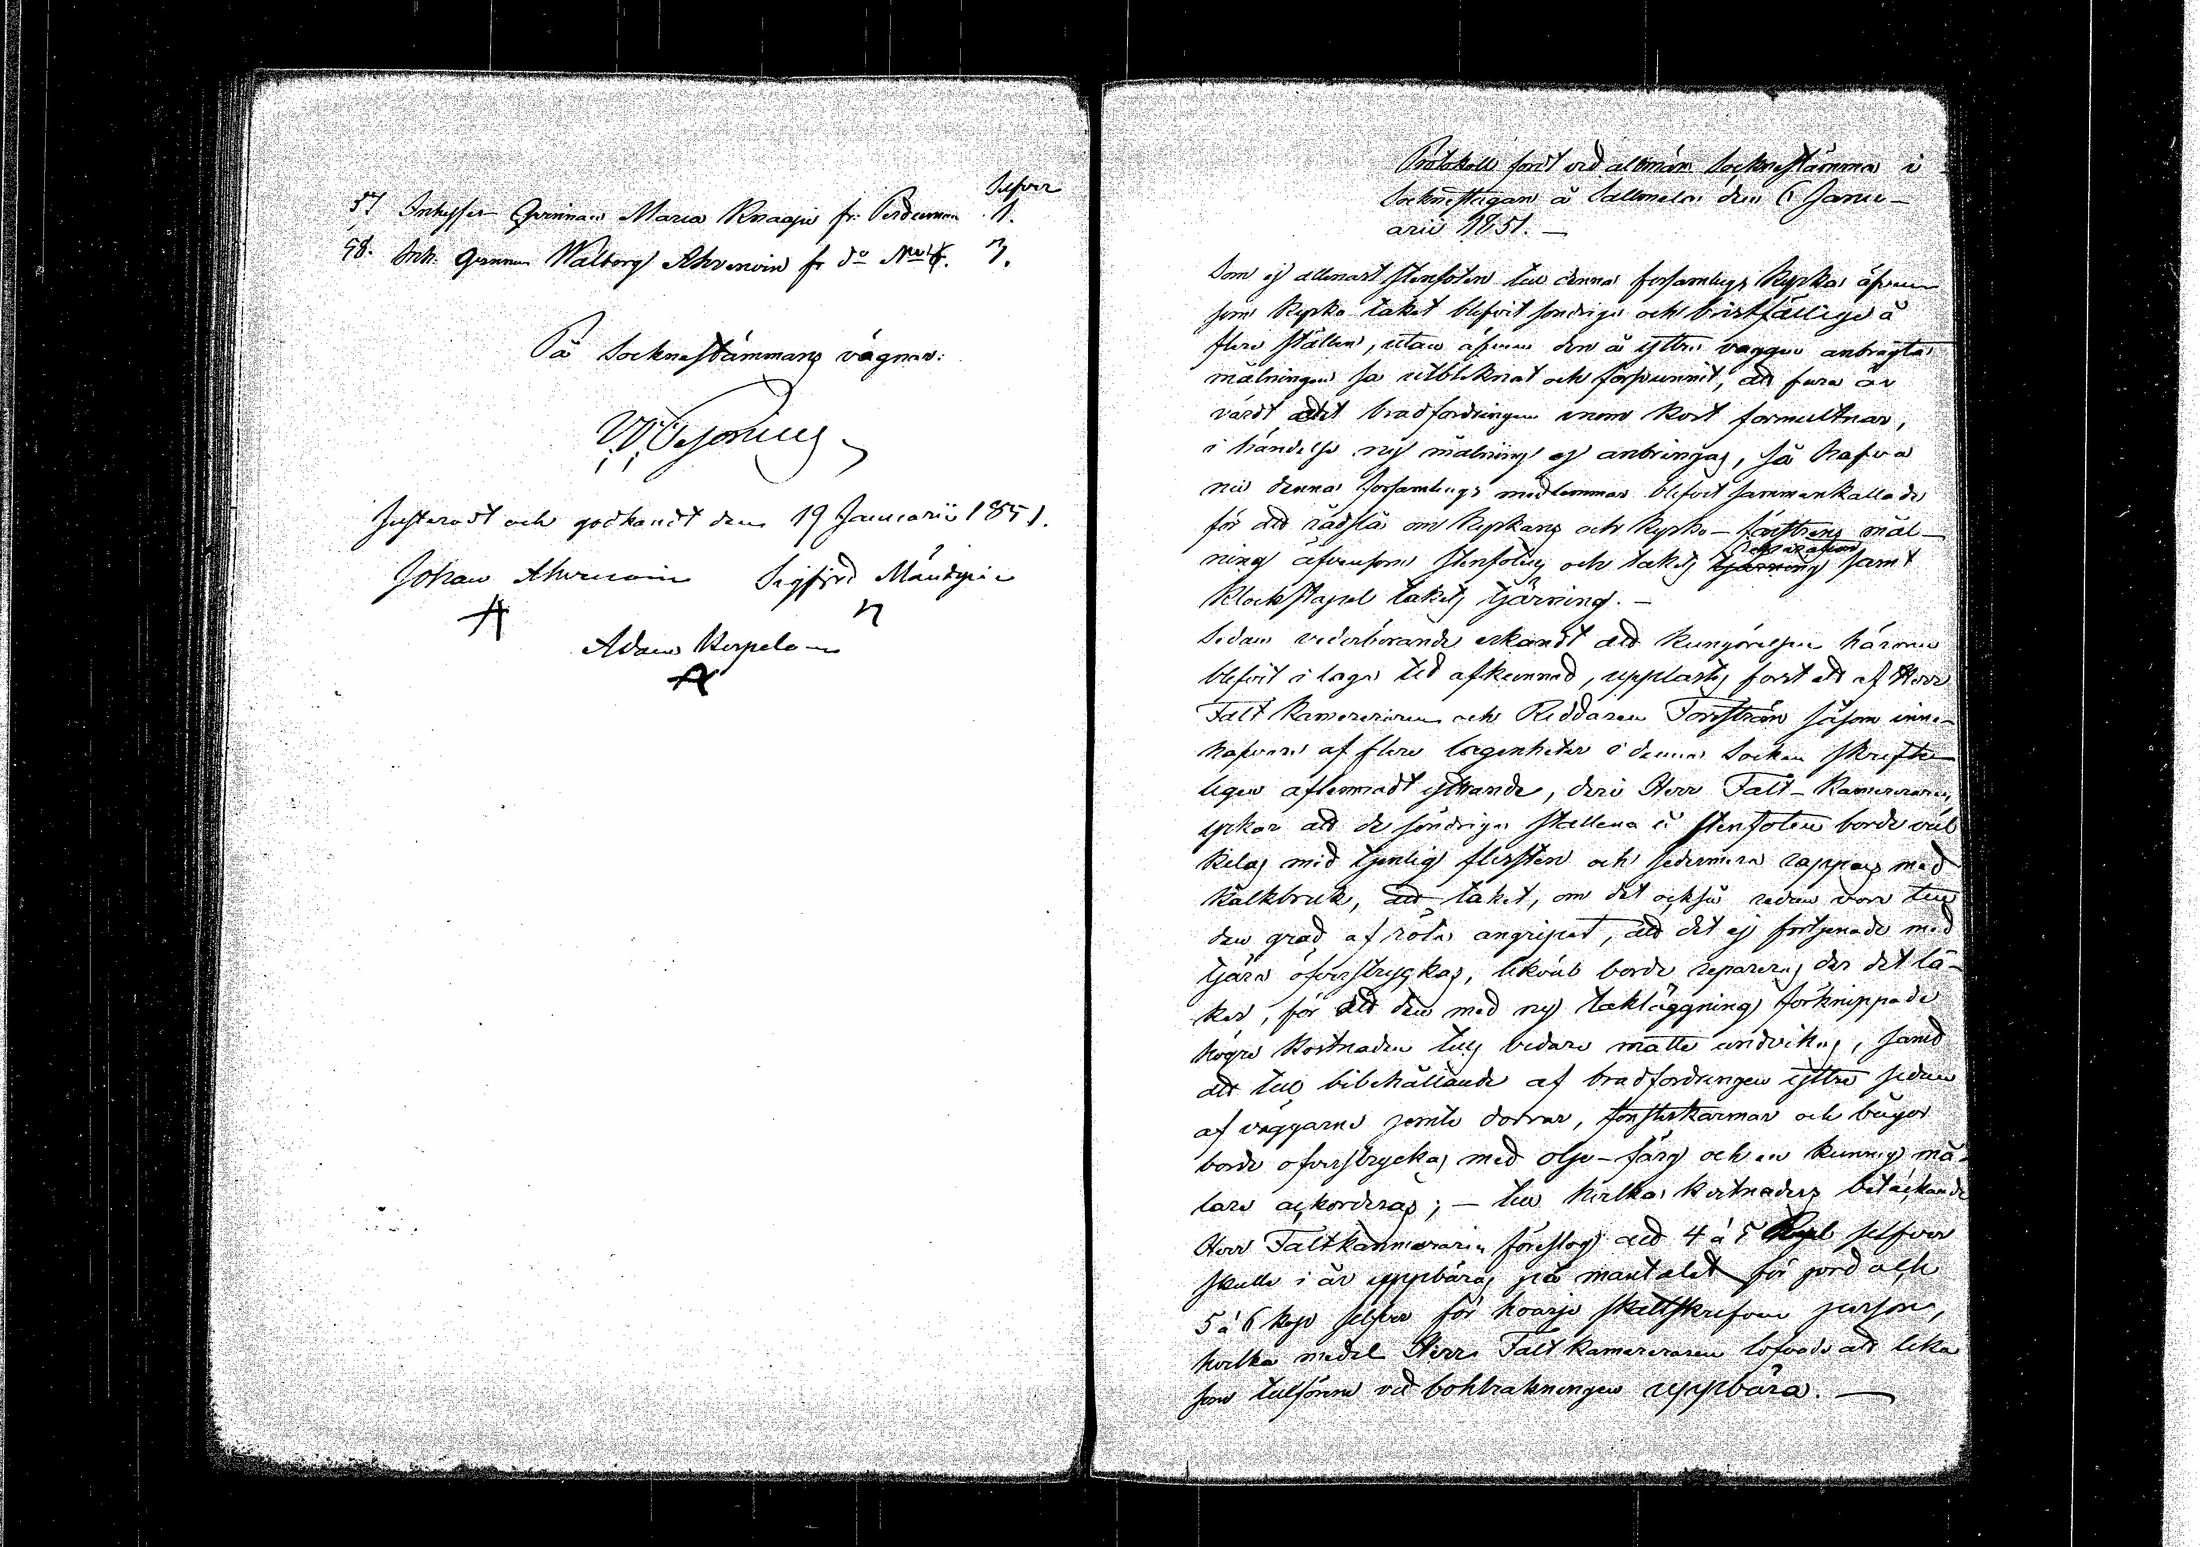 Silfver
57 Inhyses Qvinnan Maria Knaapi fr. 1.
58. Inh. Qvinnan Walborg Ahvenain fr do No 6. 3.
På Socknestämmans vägnar:
Justeradt och godkändt den 19 Januarii 1851.
Johan Ahvenain Sigfrid Mändynen
Adam Kerpela
Protokoll fördt vid allmän Sockenstämma i
Sockenstugan å Sallmela den 6 Janu-
arii 1851. —
Som ej allenast stenfoten till denna församlings kyrka äfven
som kyrko taket blifvit söndriga och bristfällige å
flere ställen, utan äfven den å yttre väggen anbragta
målningen så utbleknat och försvunnit, att fara är
värdt att bradfordringen inom kort förmultnar,
i händelse ny målning ej anbringas, så hafva
nu denna församlings medlemmar blifvit sammankallade
för att rådslå om kyrkans och kyrko-fönstrens mål-
ning äfvensom stenfotens och takets reparation samt
Klockstapel takets tjärning. —
Sedan vederbörande erkändt att kungörelsen härom
blifvit i laga tid afkunnad, upplästes först ett af Herr
Fält Kamereraren och Riddaren Forsström såsom inne-
hafvare af flere lägenheter i denna Socken skrifte-
ligen aflemnadt yttrande, deri Herr Fält-Kamereraren
yrkar att de söndriga ställena i stenfoten borde väl
kilas med tjenlig flissten och sedermera rappas med
kalkbruk, att taket, om det också redan vore till
den grad af röta angripet, att det ej förtjenade med
tjära öfverstrykas, likväl borde repareras der det lä-
ker, för att den med ny takläggning förknippade
högre kostnaden tills vidare måtte undvikas, samt
att till bibehållande af bradfordringen yttre sidan
af väggarne jemte dörrar, fönsterkarmar och bågar
borde öfverstrykas med olje-färg och en kunnig må-
lare ackorderas; — till hvilka kostnaders betäckande
Herr Fältkamereraren föreslog att 4 à 5 Rubl silfver
skulle i år uppbäras på mantalet för jord och
5 à 6 kop silfver för hvarje skattskrifven person,
hvilka medel Herr Fält Kamereraren lofvade att lika
som tillförene vid bohltakningen uppbära. —